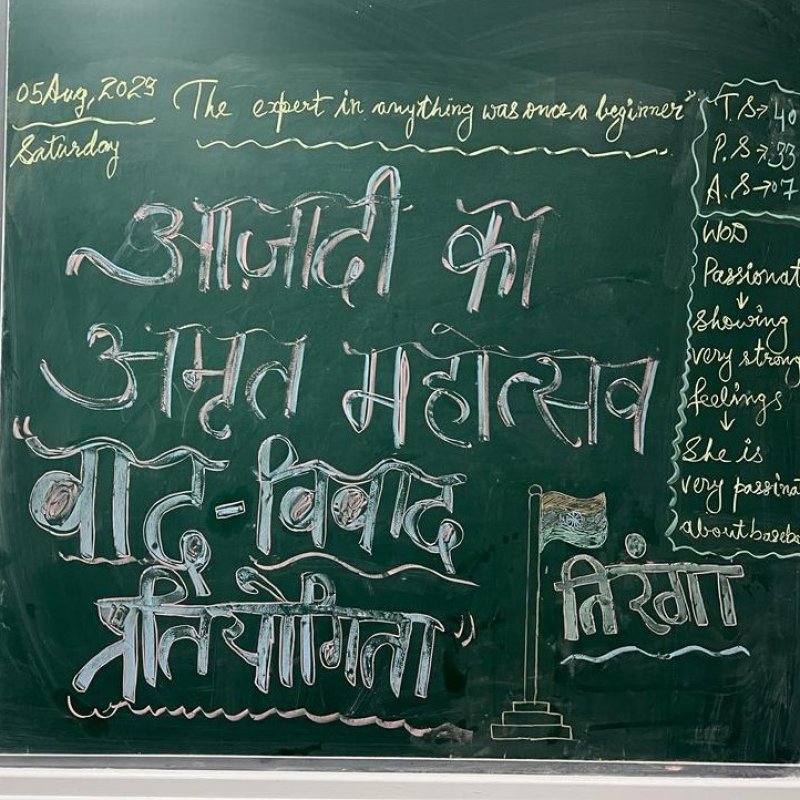 05 Aug, 2023
Saturday
"The expert in anything was once a beginner"
T.S→40
P.S→33
A.S→07
WOD
Passionat
↓
showing
very strong
feelings
↓
She is
very passinat
about baseba
आज़ादी का
अमृत महोत्सव
"वाद-विवाद
प्रतियोगिता"
तिरंगा